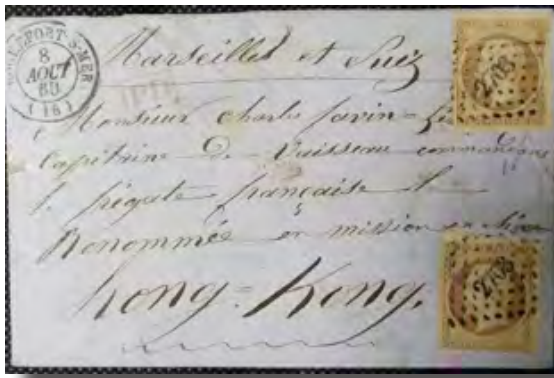 ROCHEFORT-S-MER
8
AOUT
60
(16)
Marseilles et Suez
2703
Monsieur Charles
Capitaine De Vaisseau commandant
frégate française la
Renommée en mission en Chine
hong=Kong.
2703